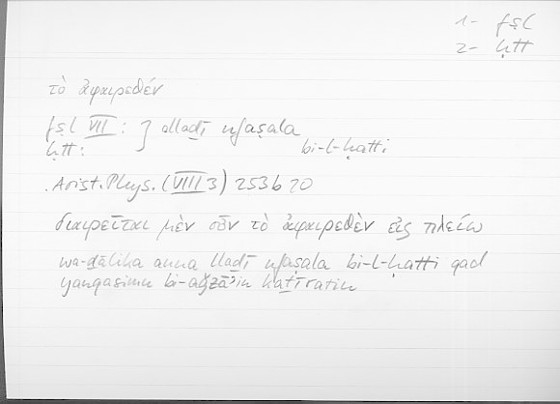 1- fṣl
2- ḥṭṭ
τὸ ἀφαιρεθέν
fṣl VII : } alladī nfaṣala
ḥṭṭ : bi-l-ḥaṭṭi
Arist. Phys. (VIII 3) 253 b 20
διαιρεῖται μὲν οὖν τὸ ἀφαιρεθὲν εἰς πλείω
wa-ḏālika anna lladī nfaṣala bi-l-ḥaṭṭi qad
yanqasimu bi-aǧzāʾin kaṯīratin